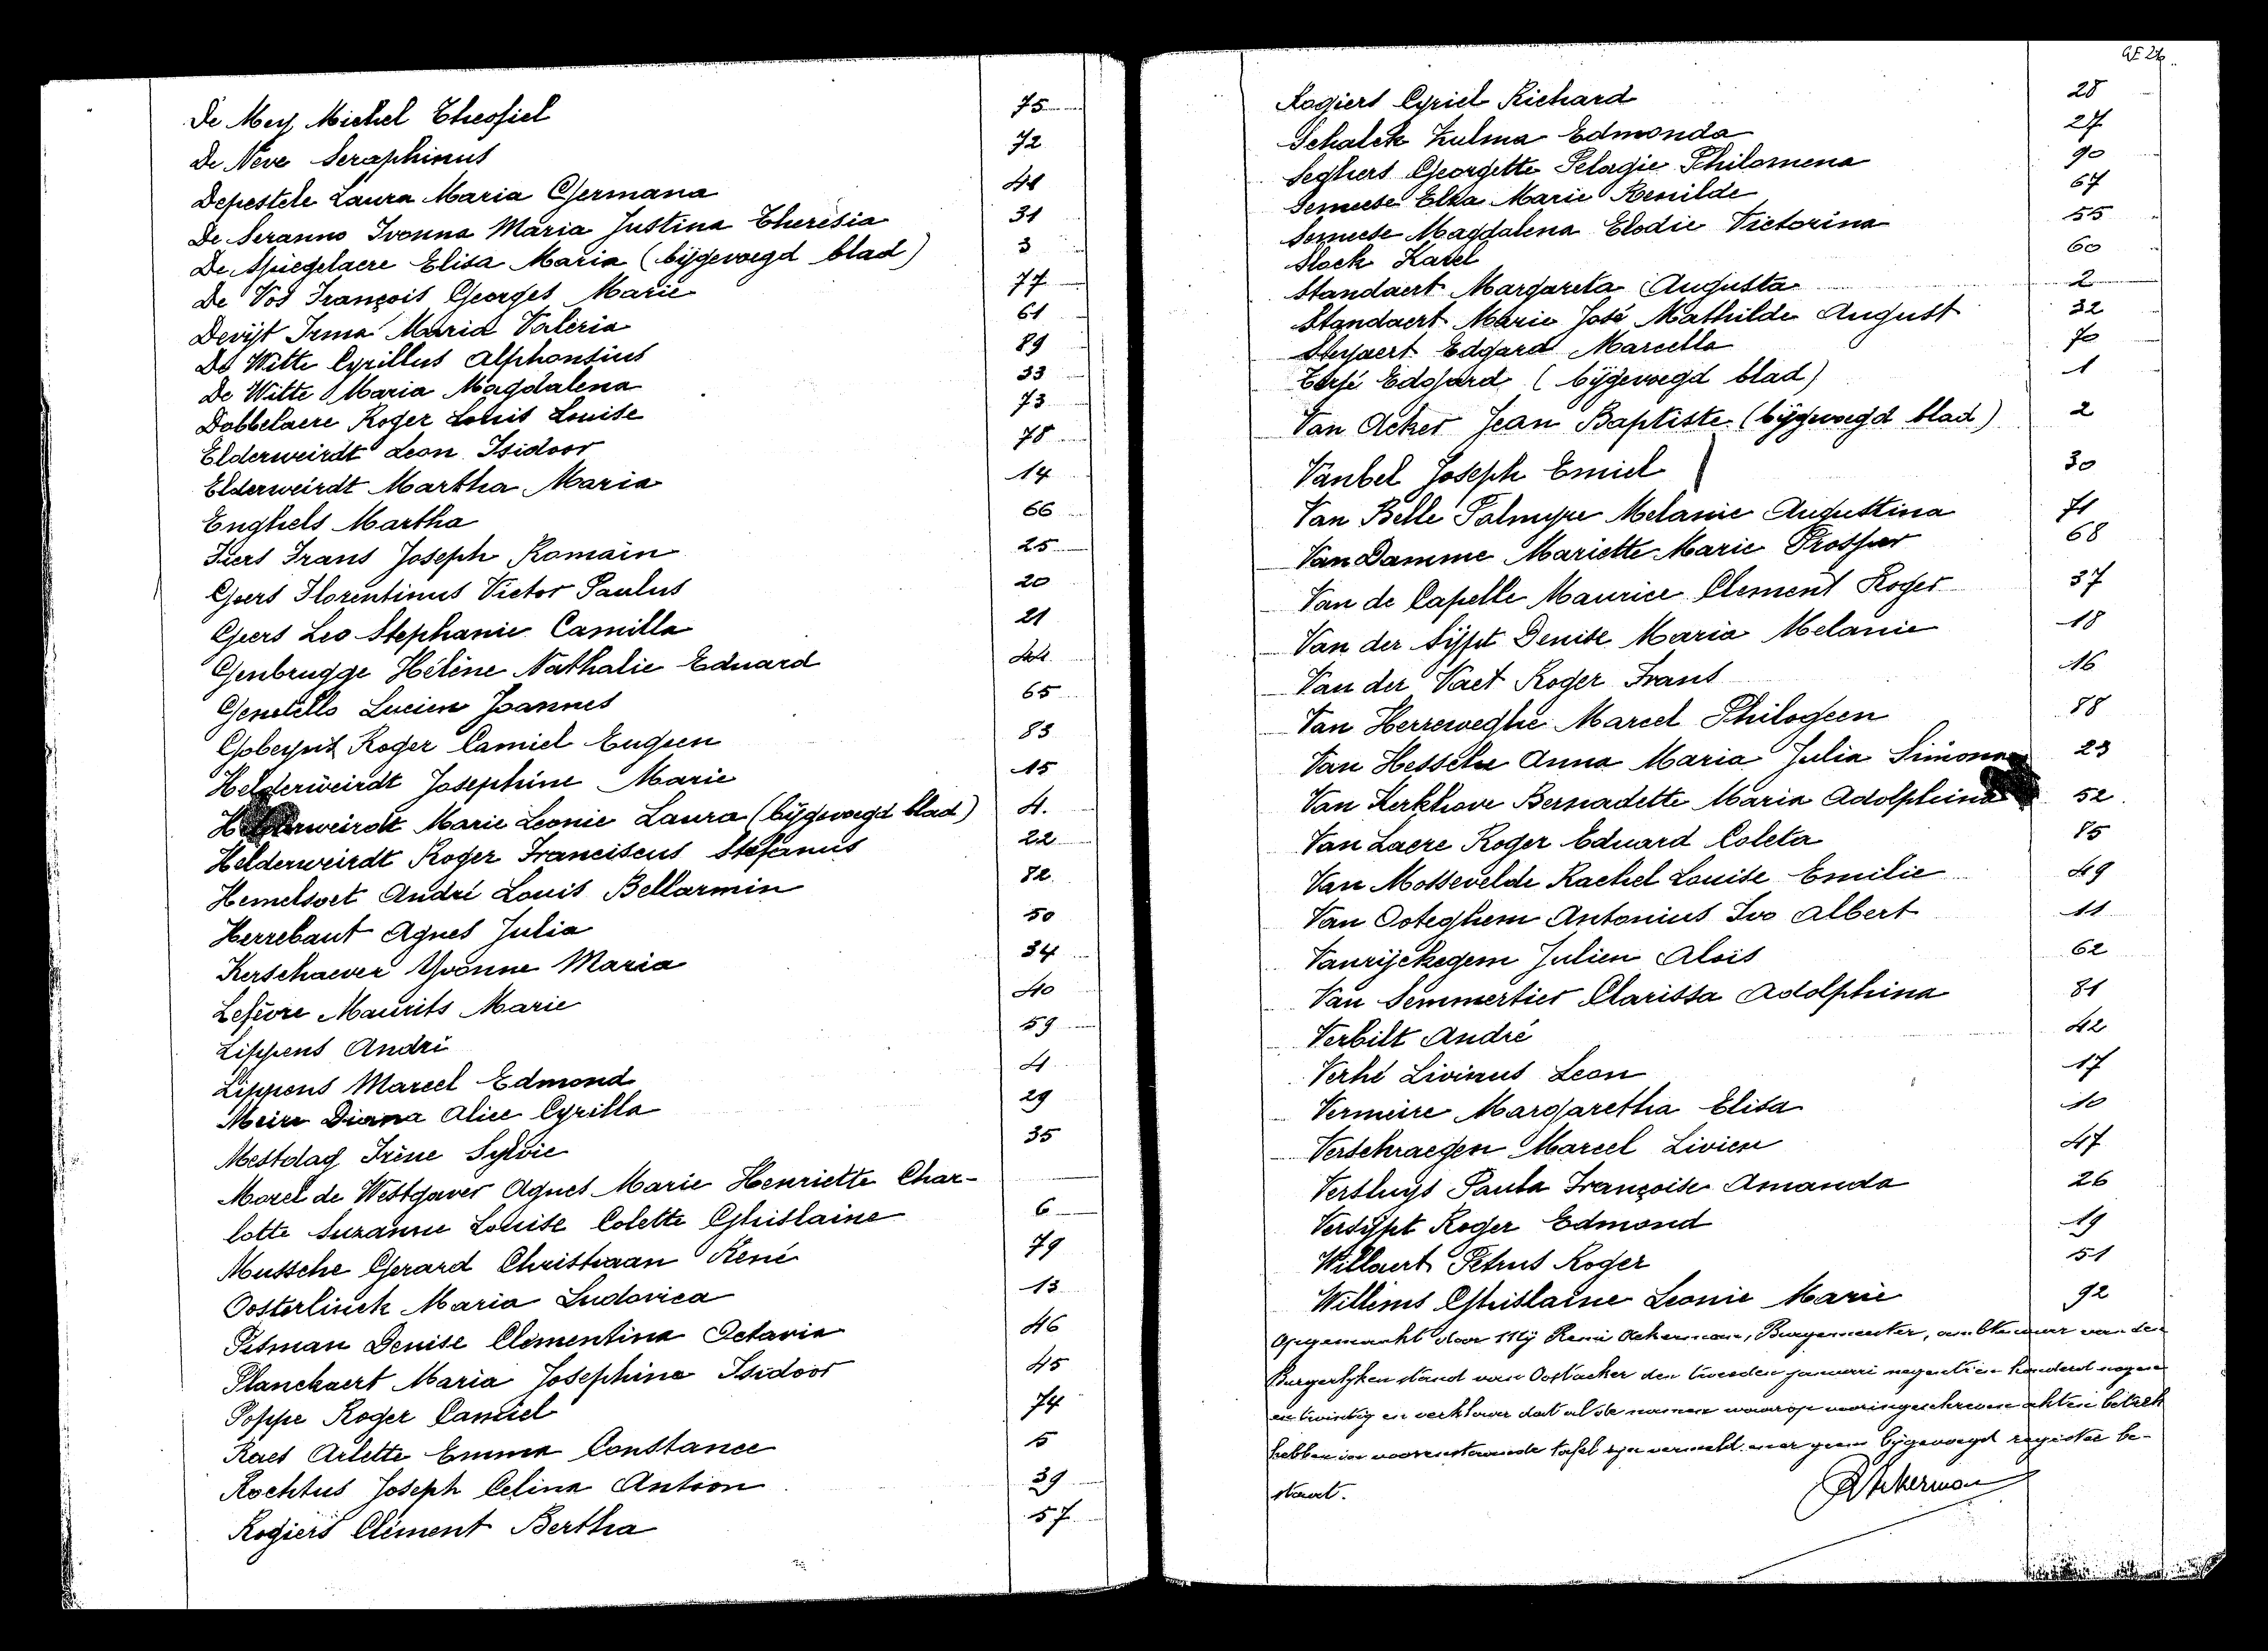 De Mey Michel Theofiel 75
De Neve Seraphinus 72
Depestele Laura Maria Germana 41
De Seranno Ivonna Maria Justina Theresia 31
De Spiegelaere Elisa Maria (bijgevoegd blad) 3
De Vos François Georges Marie 77
Devijt Irma Maria Valeria 61
De Witte Cyrillus Alphonsius 89
De Witte Maria Magdalena 33
Dobbelaere Roger Louis Louise 73
Elderweirdt Leon Isidoor 78
Elderweirdt Martha Maria 14
Enghels Martha 66
Fiers Frans Joseph Romain 25
Geers Florentinus Victor Paulus 20
Geers Leo Stephanie Camilla 21
Genbrugge Hélène Nathalie Eduard 44
Genetello Lucien Joannes 65
Gobeyn Roger Camiel Eugeen 83
Helderweirdt Josephine Marie 15
Helderweirdt Marie Leonie Laura (bijgevoegd blad) 4.
Helderweirdt Roger Franciscus Stefanus 22
Hemelsoet André Louis Bellarmin 82
Herrebaut Agnes Julia 50
Kerschaever Yvonne Maria 34
Lefèvre Maurits Marie 40
Lippens André 59
Lippens Marcel Edmond 4
Meire Diana Alice Cyrilla 29
Mestdag Irène Sylvie 35
Morel de Westgaver Agnes Marie Henriette Char-
lotte Suzanne Louise Colette Ghislaine 6
Mussche Gerard Christiaan René 79
Oosterlinck Maria Ludovica 13
Pitman Denise Clementina Octavia 46
Planckaert Maria Josephine Isidoor 45
Poppe Roger Camiel 74
Raes Arlette Emma Constance 5
Rochtus Joseph Celina Antoon 39
Rogiers Clément Bertha 57
Rogiers Cyriel Richard 28
Schalck Zulma Edmonda 27
Seghers Georgette Pelagie Philomena 90
Semeese Elza Marie Renilde 67
Semeese Magdalena Elodie Victorina 55
Slock Karel 60
Standaert Margareta Augusta 2
Standaert Marie José Mathilde August 32
Steyaert Edgard Marcella 70
Edgard (bijgevoegd blad) 1
Van Acker Jean Baptiste (bijgevoegd blad) 2
Vanbel Joseph Emiel 30
Van Belle Palmyre Melanie Augustina 71
Van Damme Mariette Marie Prosper 68
Van de Capelle Maurice Clement Roger 37
Van der Sijpt Denise Maria Melanie 18
Van der Vaet Roger Frans 16
Van Herreweghe Marcel Philogeen 88
Van Hessche Anna Maria Julia Simonne 23
Van Kerkhove Bernadette Maria Adolphina 52
Van Laere Roger Eduard Coleta 85
Van Mossevelde Rachel Louise Emilie 49
Van Ooteghem Antonius Ivo Albert 11
Vanrijckegem Julien Alois 62
Van Semmertier Clarissa Adolphina 81
Verbilt André 42
Verhé Livinus Leon 17
Vermeire Margaretha Elisa 10
Verschraegen Marcel Livien 47
Versluys Paula Françoise Amanda 26
Versijpt Roger Edmond 19
Willaert Petrus Roger 51
Willems Ghislaine Leonie Marie 92
Opgemaakt door Mij René Ackerman, Burgemeester, ambtenaar van den
Burgerlijken stand van Oostacker den tweeden januari negentien honderd negen
en twintig en verklaar dat al de namen waarop ingeschreven akten betrek
hebben in voorenstaande tafel zijn vermeld. geen bijgevoegd register be-
staat.
RAckerman